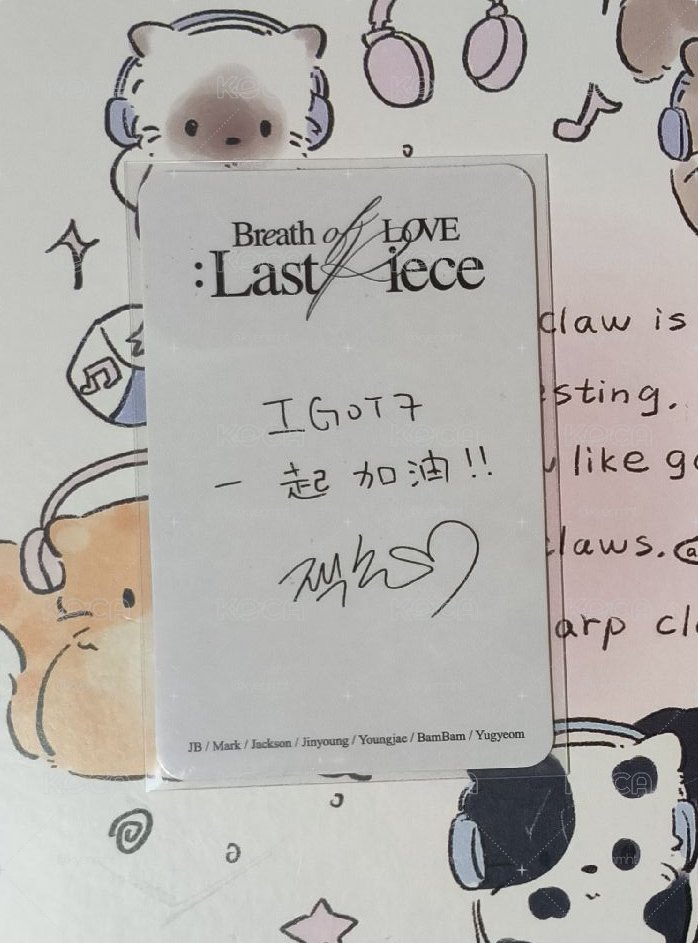 Breath of LOVE
:Last Piece
I GOT 7
一起 加油!!
잭슨♡
JB / Mark / Jackson / Jinyoung / Youngjae / BamBam / Yugyeom
claw is
sting.
like go
laws.
arp cl
KOCA